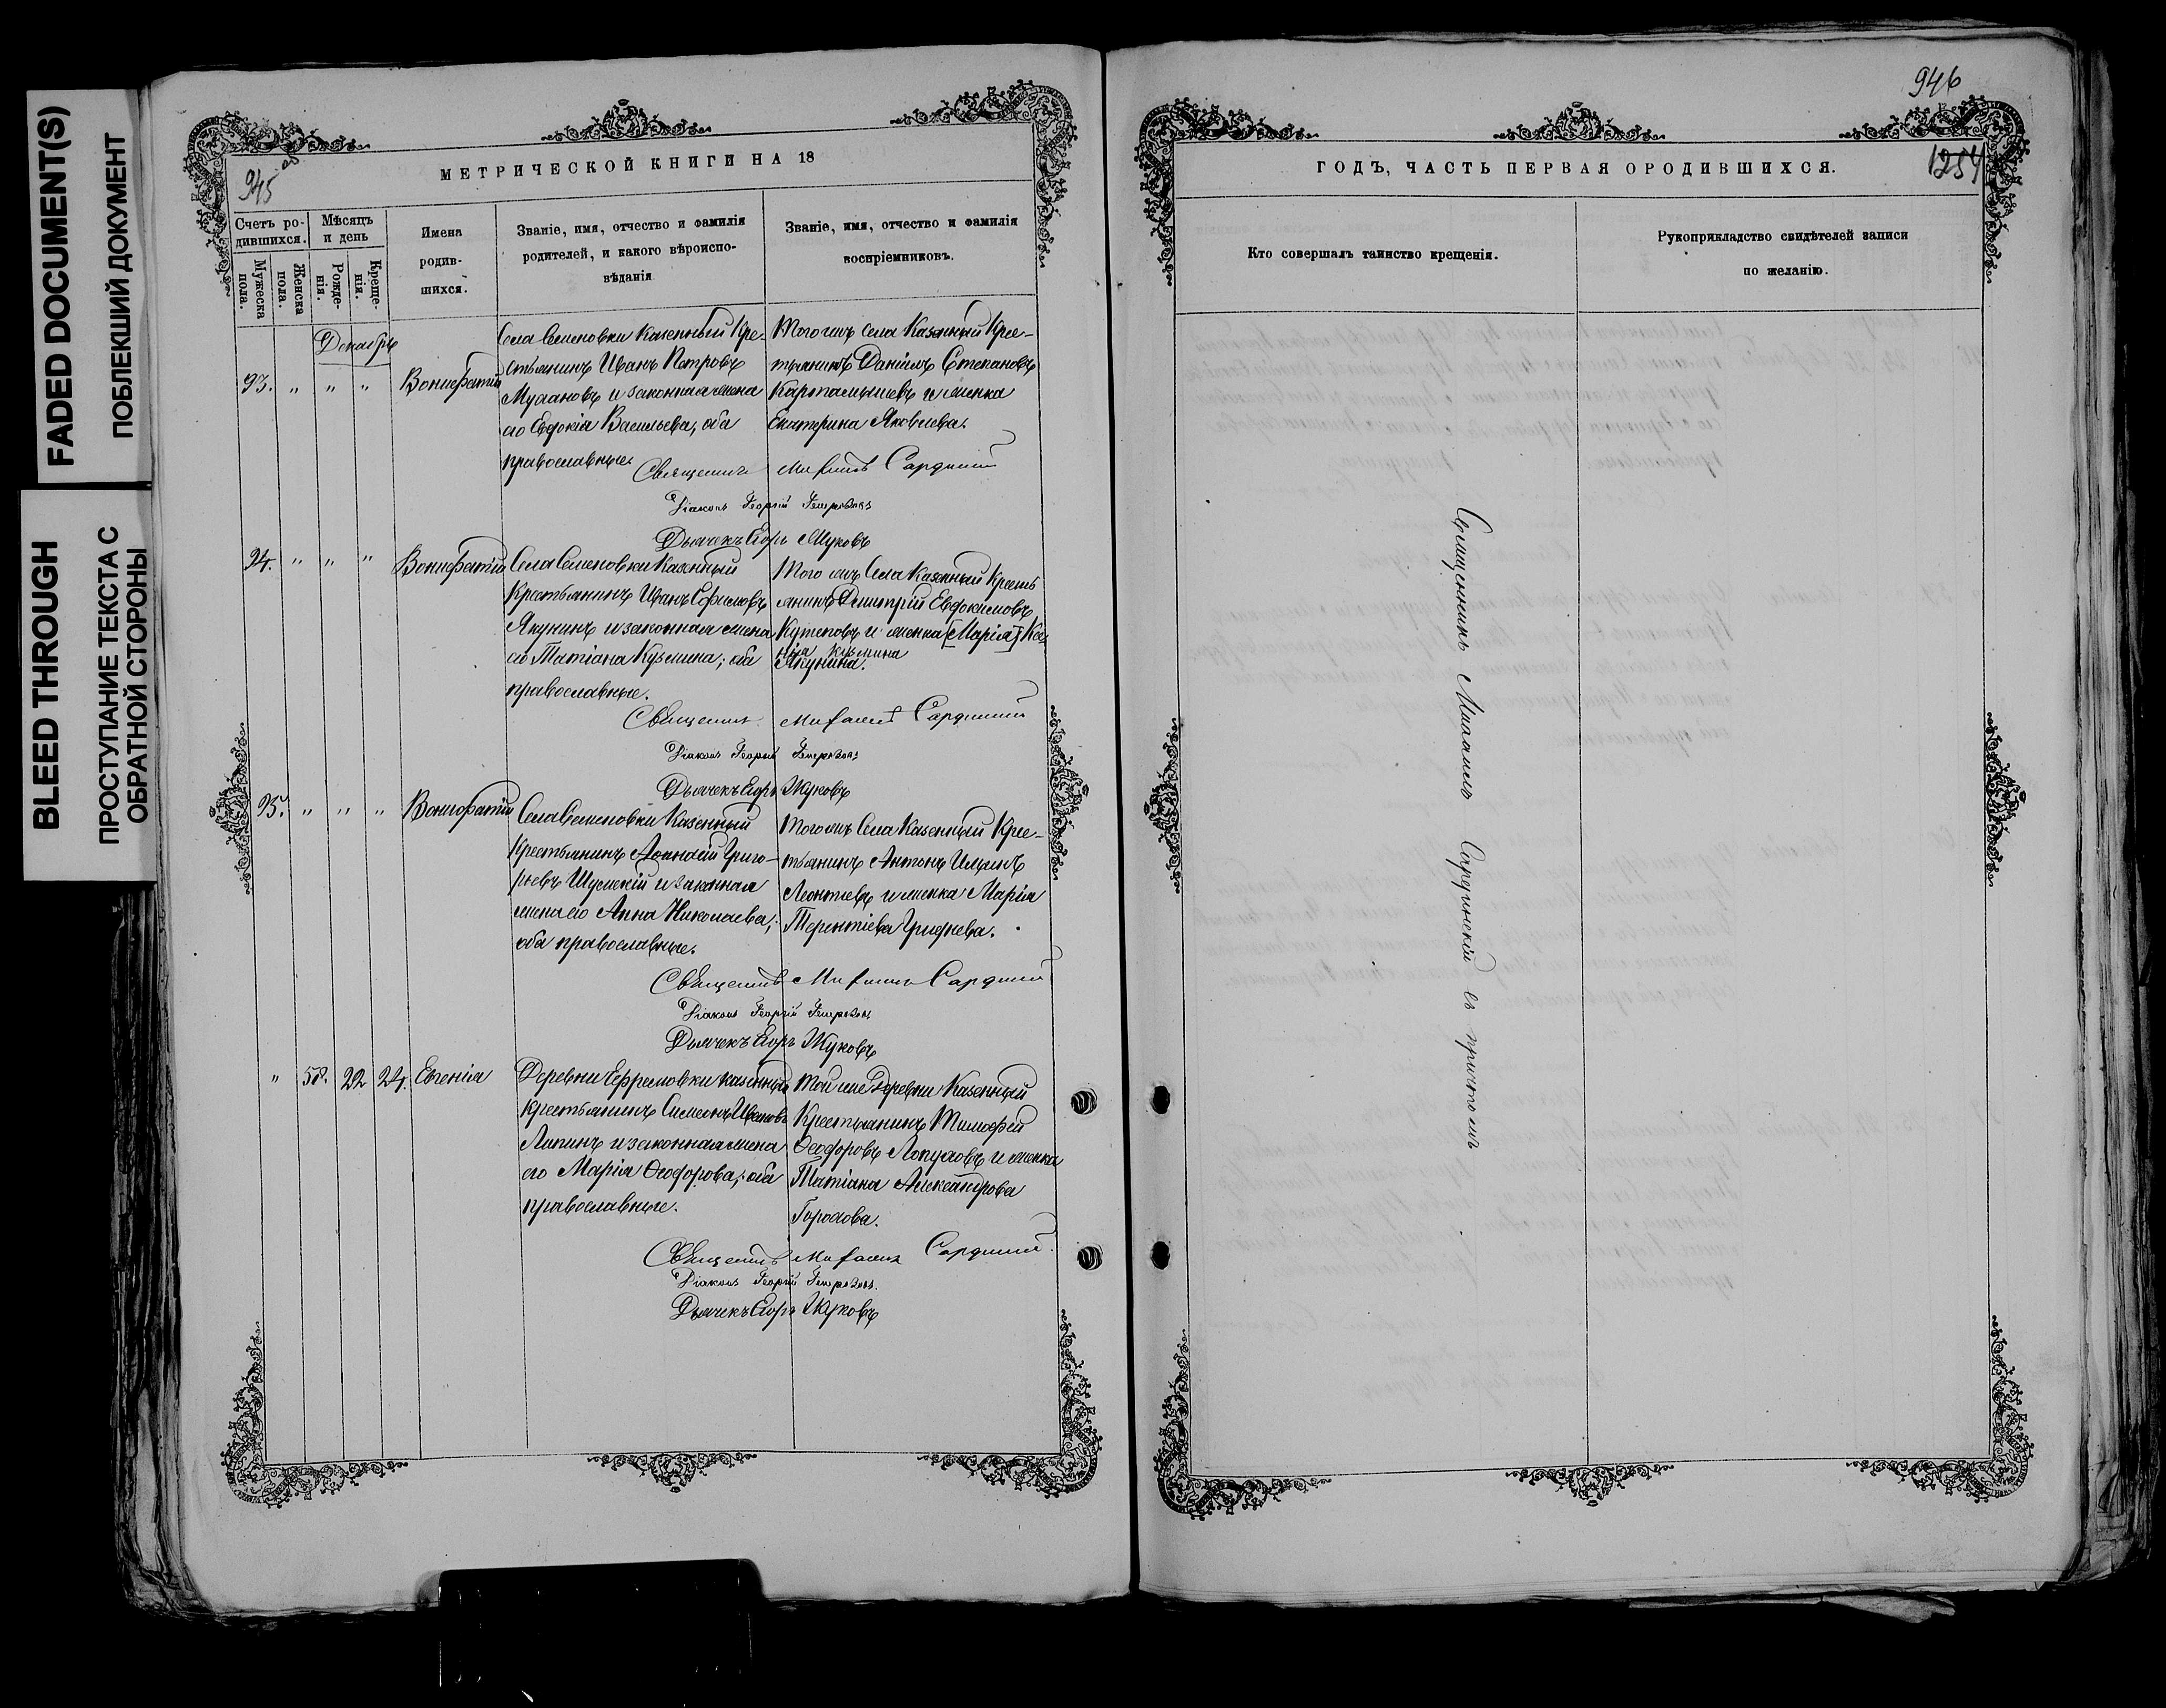 FADED DOCUMENT(S)
ПОБЛЕКШИЙ ДОКУМЕНТ
BLEED THROUGH
ПРОСТУПАНИЕ ТЕКСТА С
ОБРАТНОЙ СТОРОНЫ
945
МЕТРИЧЕСКОЙ КНИГИ НА 18
Счетъ ро-
дившихся.
Мужеска
пола.
Женска
пола.
Мѣсяцъ
и день
Рожде-
нія.
Креще-
нія.
Имена
родив-
шихся.
Званіе, имя, отчество и фамилія
родителей, и какого вѣроиспо-
вѣданія
Званіе, имя, отчество и фамилія
воспріемниковъ.
Декабрь
93. " " " Вонифатій
Села Семеновки Казенный Кре-
стьянинъ Иванъ Петровъ
и законная жена
его Евдокія Васильева, оба
православные.
Того жъ Села Казенный Крес-
тьянинъ Даніилъ Степановъ
Картамышевъ и женка
Екатерина Яковлева.
Священникъ Михаилъ Сардинскій
Діаконъ Георгій
Дьячекъ Егоръ Жуковъ
94. " " " Вонифатій
Села Семеновки Казенный
Крестьянинъ Иванъ Ефимовъ
Якунинъ и законная жена
его Татіана Кузмина; оба
православные.
Того жъ Села Казенный Кресть
янинъ Димитрій Евдокимовъ
Кутеповъ и женка [Марія] Ксе
нія Кузмина
Якунина.
Священникъ Михаилъ Сардинскій
Діаконъ Георгій
Дьячекъ Егоръ Жуковъ
95. " " " Вонифатій
Села Семеновки Казенный
Крестьянинъ Аѳанасій Григо-
рьевъ Шумскій и законная
жена его Анна Николаева;
оба православные.
Того жъ Села Казенный Крес-
тьянинъ Антонъ Ильинъ
Леонтіевъ и женка Марія
Терентіева Гриднева.
Священникъ Михаилъ Сардинскій
Діаконъ Георгій
Дьячекъ Егоръ Жуковъ
" 58. 22 24. Евгенія
Деревни Ефремовки казенный
крестьянинъ Симеонъ Ивановъ
Лапинъ и законная жена
его Марія Ѳеодорова; оба
православные.
Той же Деревни Казенный
Крестьянинъ Тимофей
Ѳеодоровъ Лопуховъ и женка
Татіана Александрова
Горохова.
Священникъ Михаилъ Сардинскій
Діаконъ Георгій
Дьячекъ Егоръ Жуковъ
946
1254
ГОДЪ, ЧАСТЬ ПЕРВАЯ ОРОДИВШИХСЯ.
Кто совершалъ таинство крещенія.
Рукоприкладство свидѣтелей записи
по желанію.
Священникъ Михаилъ Сардинскій съ причтомъ